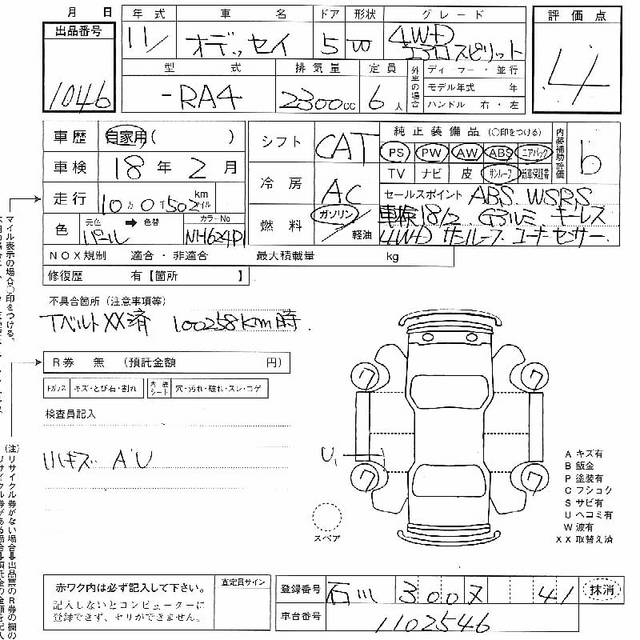 月 日 年式 車名 ドア 形状 グレード 評価点
出品番号 11 オデッセイ 5 W 4WD エアロスピリット 4
型式 排気量 定員 外車の場合 ディーラー・並行
1046 -RA4 2300cc 6人 モデル年式 年
ハンドル 右・左
車歴 自家用( ) シフト CAT 純正装備品 (○印をつける) 内装補助評価 b
PS PW AW ABS エアバック
車検 18年2月 冷房 AC TV ナビ 皮 サンルーフ
走行 10万0千502km マイル セールスポイント ABS. WSRS
色 元色 → 色替 カラーNo 燃料 ガソリン 車検18/2. キーレス
パール NH624P 軽油 4WD サンルーフ. コーナーセンサー.
NOX規制 適合・非適合 最大積載量 kg
修復歴 有【箇所 】
不具合箇所(注意事項等)
Tベルト XX済 100258km時.
R券 無 (預託金額 円)
Fガラス キズ・とび石・割れ 内張シート 穴・汚れ・破れ・スレ・コゲ
検査員記入
小キズ A'U
U1
ワ ワ
ワ ワ
スペア
A キズ有
B 鈑金
P 塗装有
C フショク
S サビ有
U ヘコミ有
W 波有
XX 取替え済
赤ワク内は必ず記入して下さい。 査定員サイン
記入しないとコンピューターに
登録できず、セリができません。
登録番号 石川 300 ヌ 41 抹消
車台番号 1102546
マイル表示の場合○印をつける。